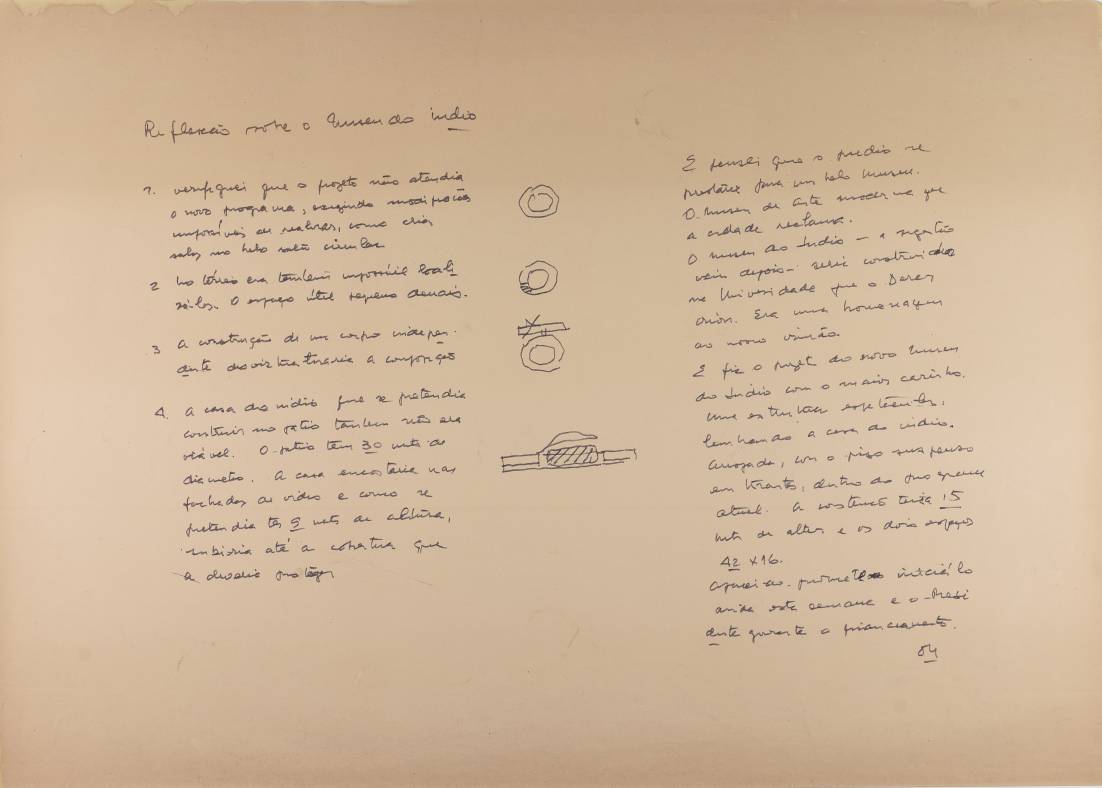 Reflexão sobre o museu do índio
1. verifiquei que o projeto não atendia
o novo programa, exigindo modificações
impossíveis de realizar, como criar
salas no belo salão circular
2 No térreo era também impossível locali-
zá-las. O espaço útil pequeno demais.
3 A construção de um corpo indepen-
dente desvirtuaria a composição
4. A casa do índio que se pretendia
construir no patio tambem não era
viável. O patio tem 30 mts de
diametro. A casa encostaria nas
fachadas de vidro e como se
pretendia ter 9 mts de altura,
subiria até a cobertura que
a devia proteger
E pensei que o predio se
prestaria para um belo museu.
O museu de arte moderna que
a cidade reclama.
O museu do Indio – a sugestão
veio depois – seria construido
na Universidade que o Darcy
criou. Era uma homenagem
ao nosso irmão.
E fiz o projeto do novo museu
do Indio com o maior carinho.
Uma estrutura espetacular,
lembrando a casa do indio.
Arrojada, com o piso suspenso
em tirantes, dentro do programa
atual. A construção teria 15
mts de altura e os dois espaços
42 x 16.
Aparecido prometeu iniciá-lo
ainda esta semana e o Presi
dente garante o financiamento.